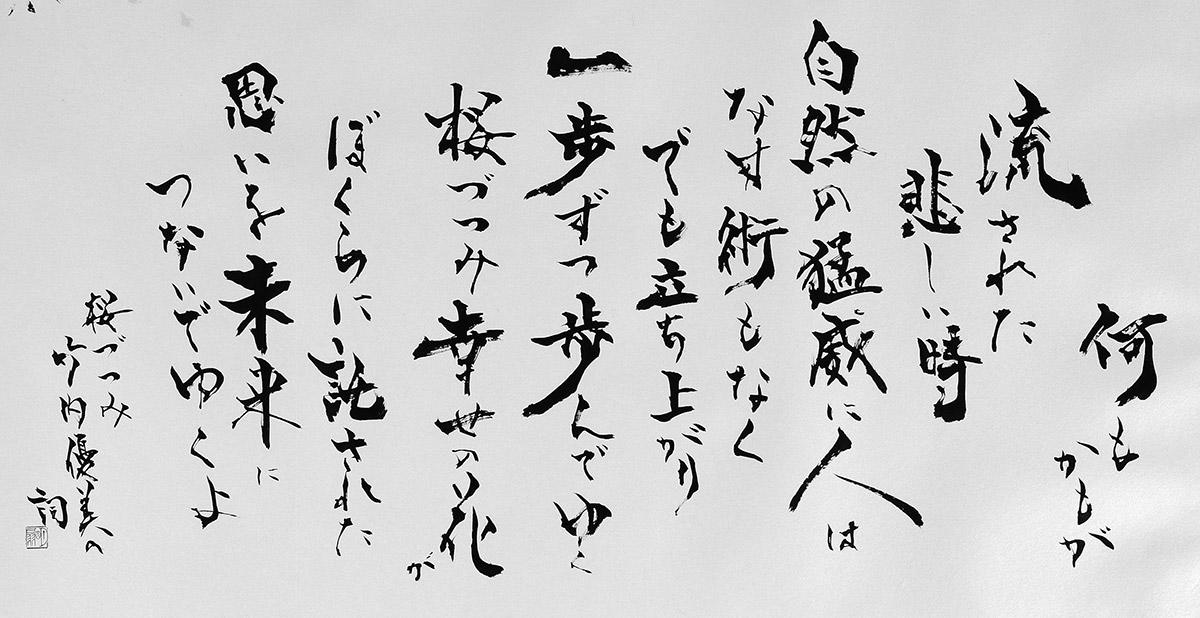 何も
かもが
流された
悲しい時
自然の猛威に人は
なす術もなく
でも立ち上がり
一歩ずつ歩んでゆく
桜づつみ幸せの花
が
ぼくらに託された
思いを未来に
つないでゆくよ
桜づつみ
竹内優美の
詞